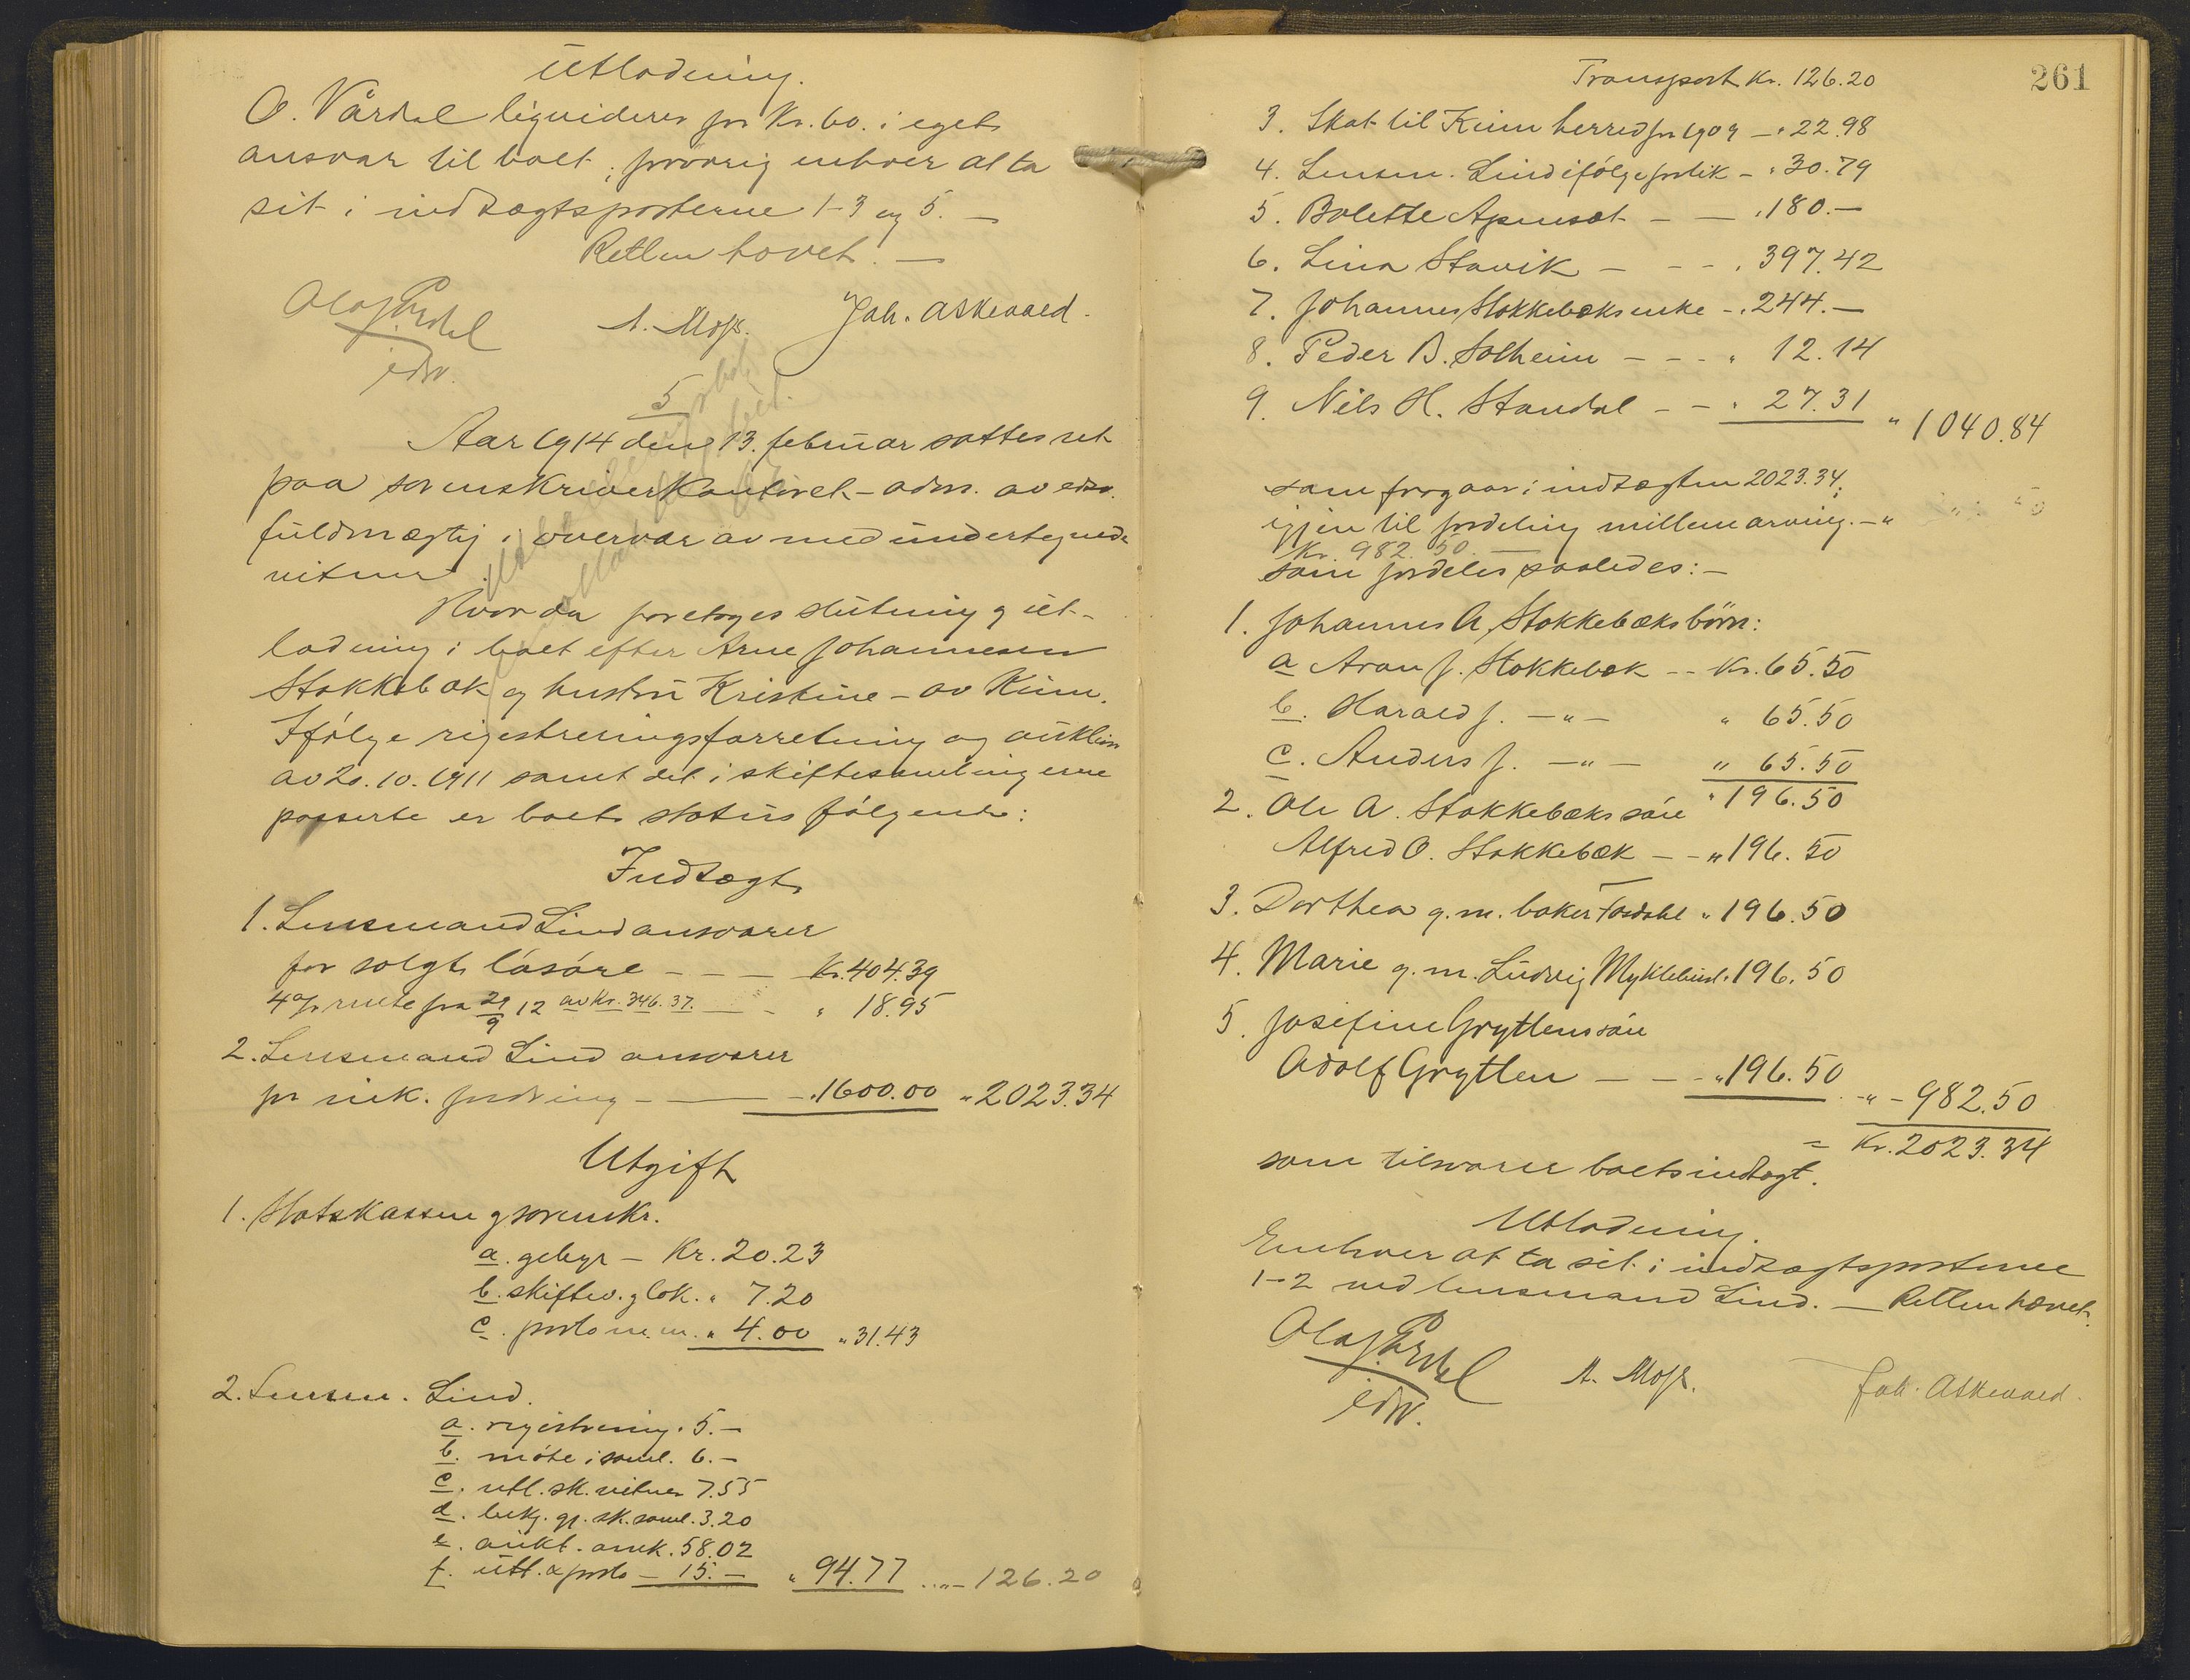 Utlodning.
O. Vårdal liquiderer for Kr. 60. i eget
ansvar til boet; forøvrig enhver at ta
sit i indtægtsposterne 1-3 og 5. —
Retten hævet. —
A. Moss. Joh. Askevold.
edsv.
5
Aar 1914 den 13. februar sattes ret
paa sorenskriverkontoret - adm. av edsv.
fuldmægtig i overvær av medundertegnede
vitner.
Hvorda foretoges slutning og ut-
lodning i boet efter Arne Johannesen
Stokkebæk og hustru Kristine - av Kinn.
Ifølge registreringsforretning og auktion
av 20.10.1911 samt det i skiftesamlingerne
passerte er boets status følgende:
Indtægt
1. Lensmand Lind ansvarer
for solgt løsøre - - - Kr. 404.39
4% rente fra 29/9 12 av Kr. 346.37. - - „ 18.95
2. Lensmand Lind ansvarer
for ink. fordring - — - „ 1600.00 „ 2023.34
Utgift
1. Statskassen g sorenskr.
a. gebyr - Kr. 20.23
b. skiftev. g lok. „ 7.20
c. porto m.m. „ 4.00 „ 31.43
2. Lensm. Lind.
a. registrering. 5.-
b. møte i saml. 6.-
c. utl. sk. vitner 7.55
d. bekj. gj. sk. saml. 3.20
e. aukt. omk. 58.02
f. utl. & porto - 15.- „ 94.77 „ - 126.20
261
Transport Kr. 126.20
3. Skat til Kinn herred for 1909 - „ 22.98
4. Lensm. Lind ifølge forlik - „ 30.79
5. Bolette Apensæt - — „ 180.—
6. Lina Stavik - - - „ 397.42
7. Johannes Stokkebæks enke - „ 244.—
8. Peder B. Solheim - - - „ 12.14
9. Nils H. Standal - - „ 27.31 „ 1040.84
som fragaar i indtægten 2023.34;
igjen til fordeling mellem arving. - „
Kr. 982.50.
som fordeles saaledes: -
1. Johannes A. Stokkebæks børn:
a Aron J. Stokkebæk - - Kr. 65.50
b. Harald J. - „ - „ 65.50
c. Anders J. - „ - „ 65.50
„ 196.50
2. Ole A. Stokkebæks søn
Alfred O. Stokkebæk - - „ 196.50
3. Dorthea g.m. baker Førdahl „ 196.50
4. Marie g.m. Ludvig Myklebust „ 196.50
5. Josefine Gryttens søn
Adolf Grytten - - - „ 196.50 - „ - 982.50
= Kr. 2023.34
som tilsvarer boets indtægt.
Utlodning.
Enhver at ta sit i indtægtsposterne
1-2 ved lensmand Lind. — Retten hævet.
A. Moss. Joh. Askevold.
edsv.